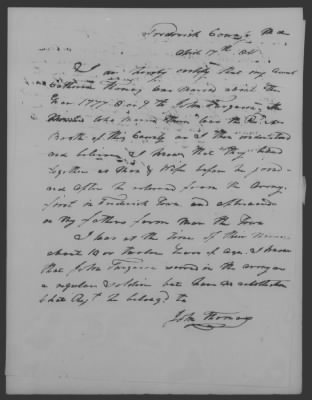 Frederick County Md
I do hereby certify that my Aunt
Catherine Thomas was married about the
Year 1777 8 or 9 to John Ferguson, the
Minister who married them was the Revd Mr
Booth of this County as I then understood
and believe, I know that they lived
together as Man & Wife before he joined
and after he returned from the Army
first in Frederick Town and afterwards
on My fathers farm near the Town
I was at the time of their Marriage
about 10 or twelve Years of Age. I know
that John Ferguson served in the army as
a regular Soldier but have no recollection
what Regt he belonged to
John Thomas